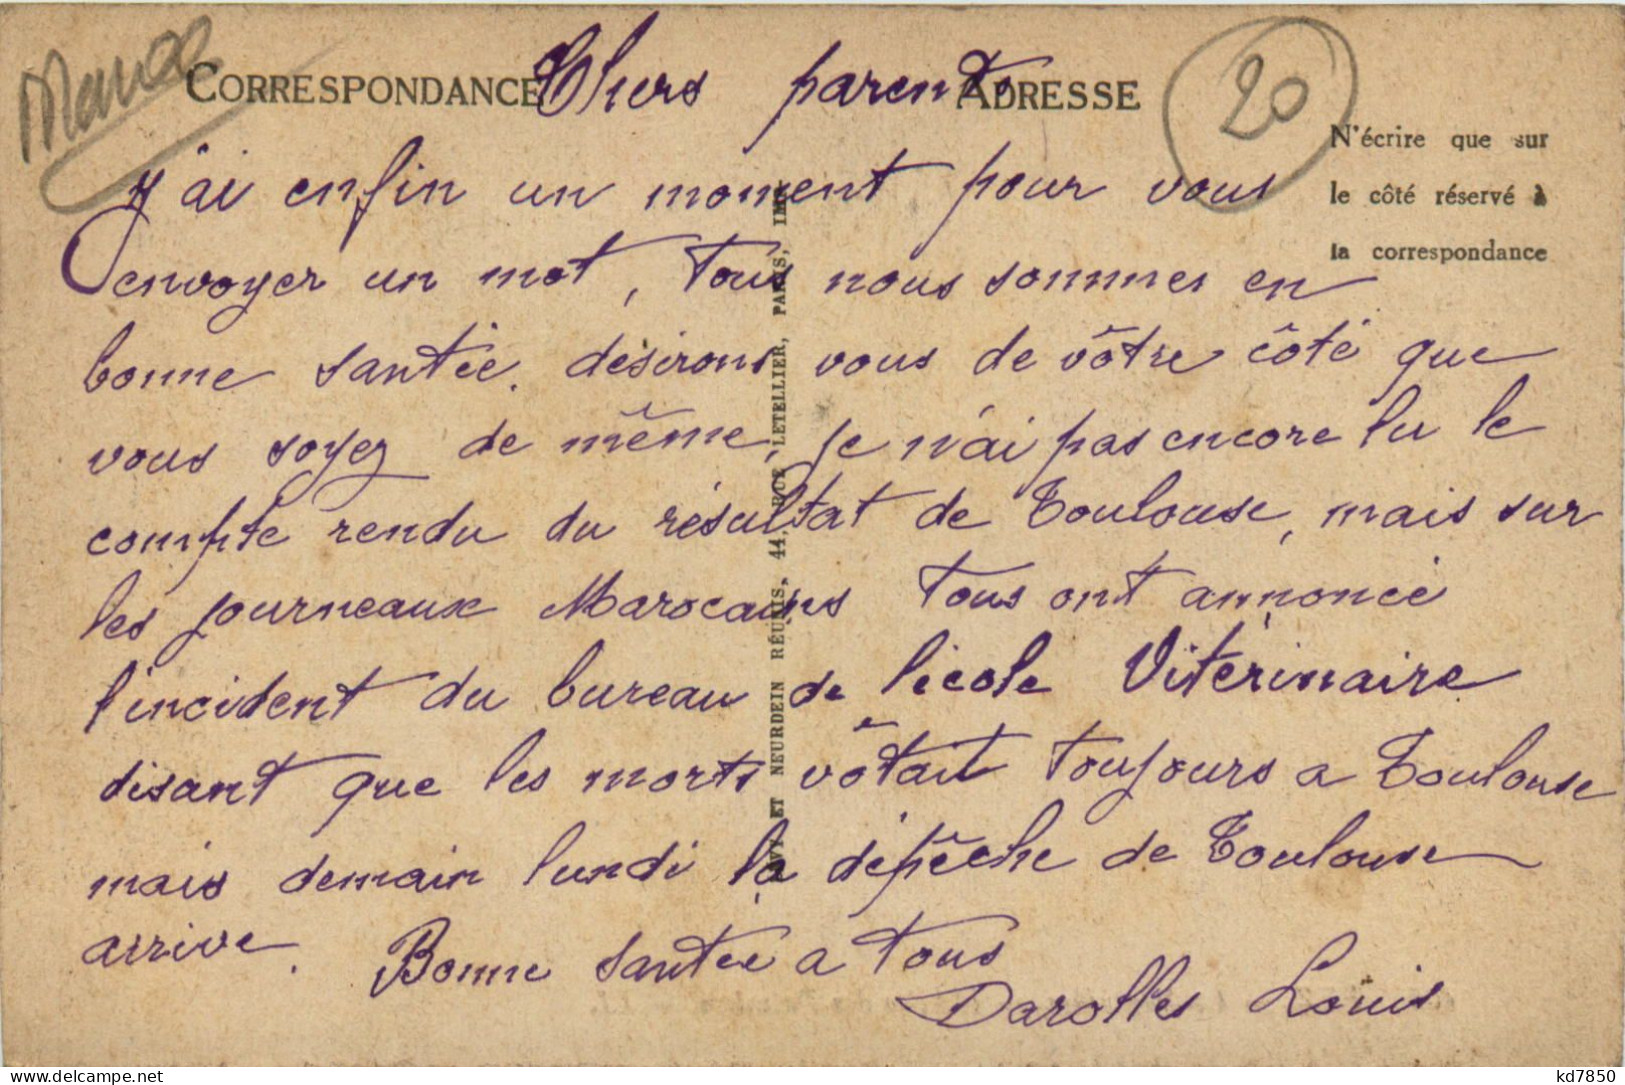 Maroc
CORRESPONDANCE
Chers parents
ADRESSE
20
N'écrire que sur
le côté réservé à
la correspondance
J'ai enfin un moment pour vous
envoyer un mot, Tous nous sommes en
bonne santée. désirons vous de vôtre côté que
vous soyez de même, je n'ai pas encore lu le
compte rendu du résultat de Toulouse, mais sur
les journeaux Marocains tous ont annoncé
l'incident du bureau de lécole Vitérinaire
disant que les morts vôtait toujours a Toulouse
mais demain lundi la dépêche de Toulouse
arrive. Bonne santée a tous
Darolles Louis
LÉVY ET NEURDEIN RÉUNIS, 44, RUE LETELLIER, PARIS, IMP.
kd7850